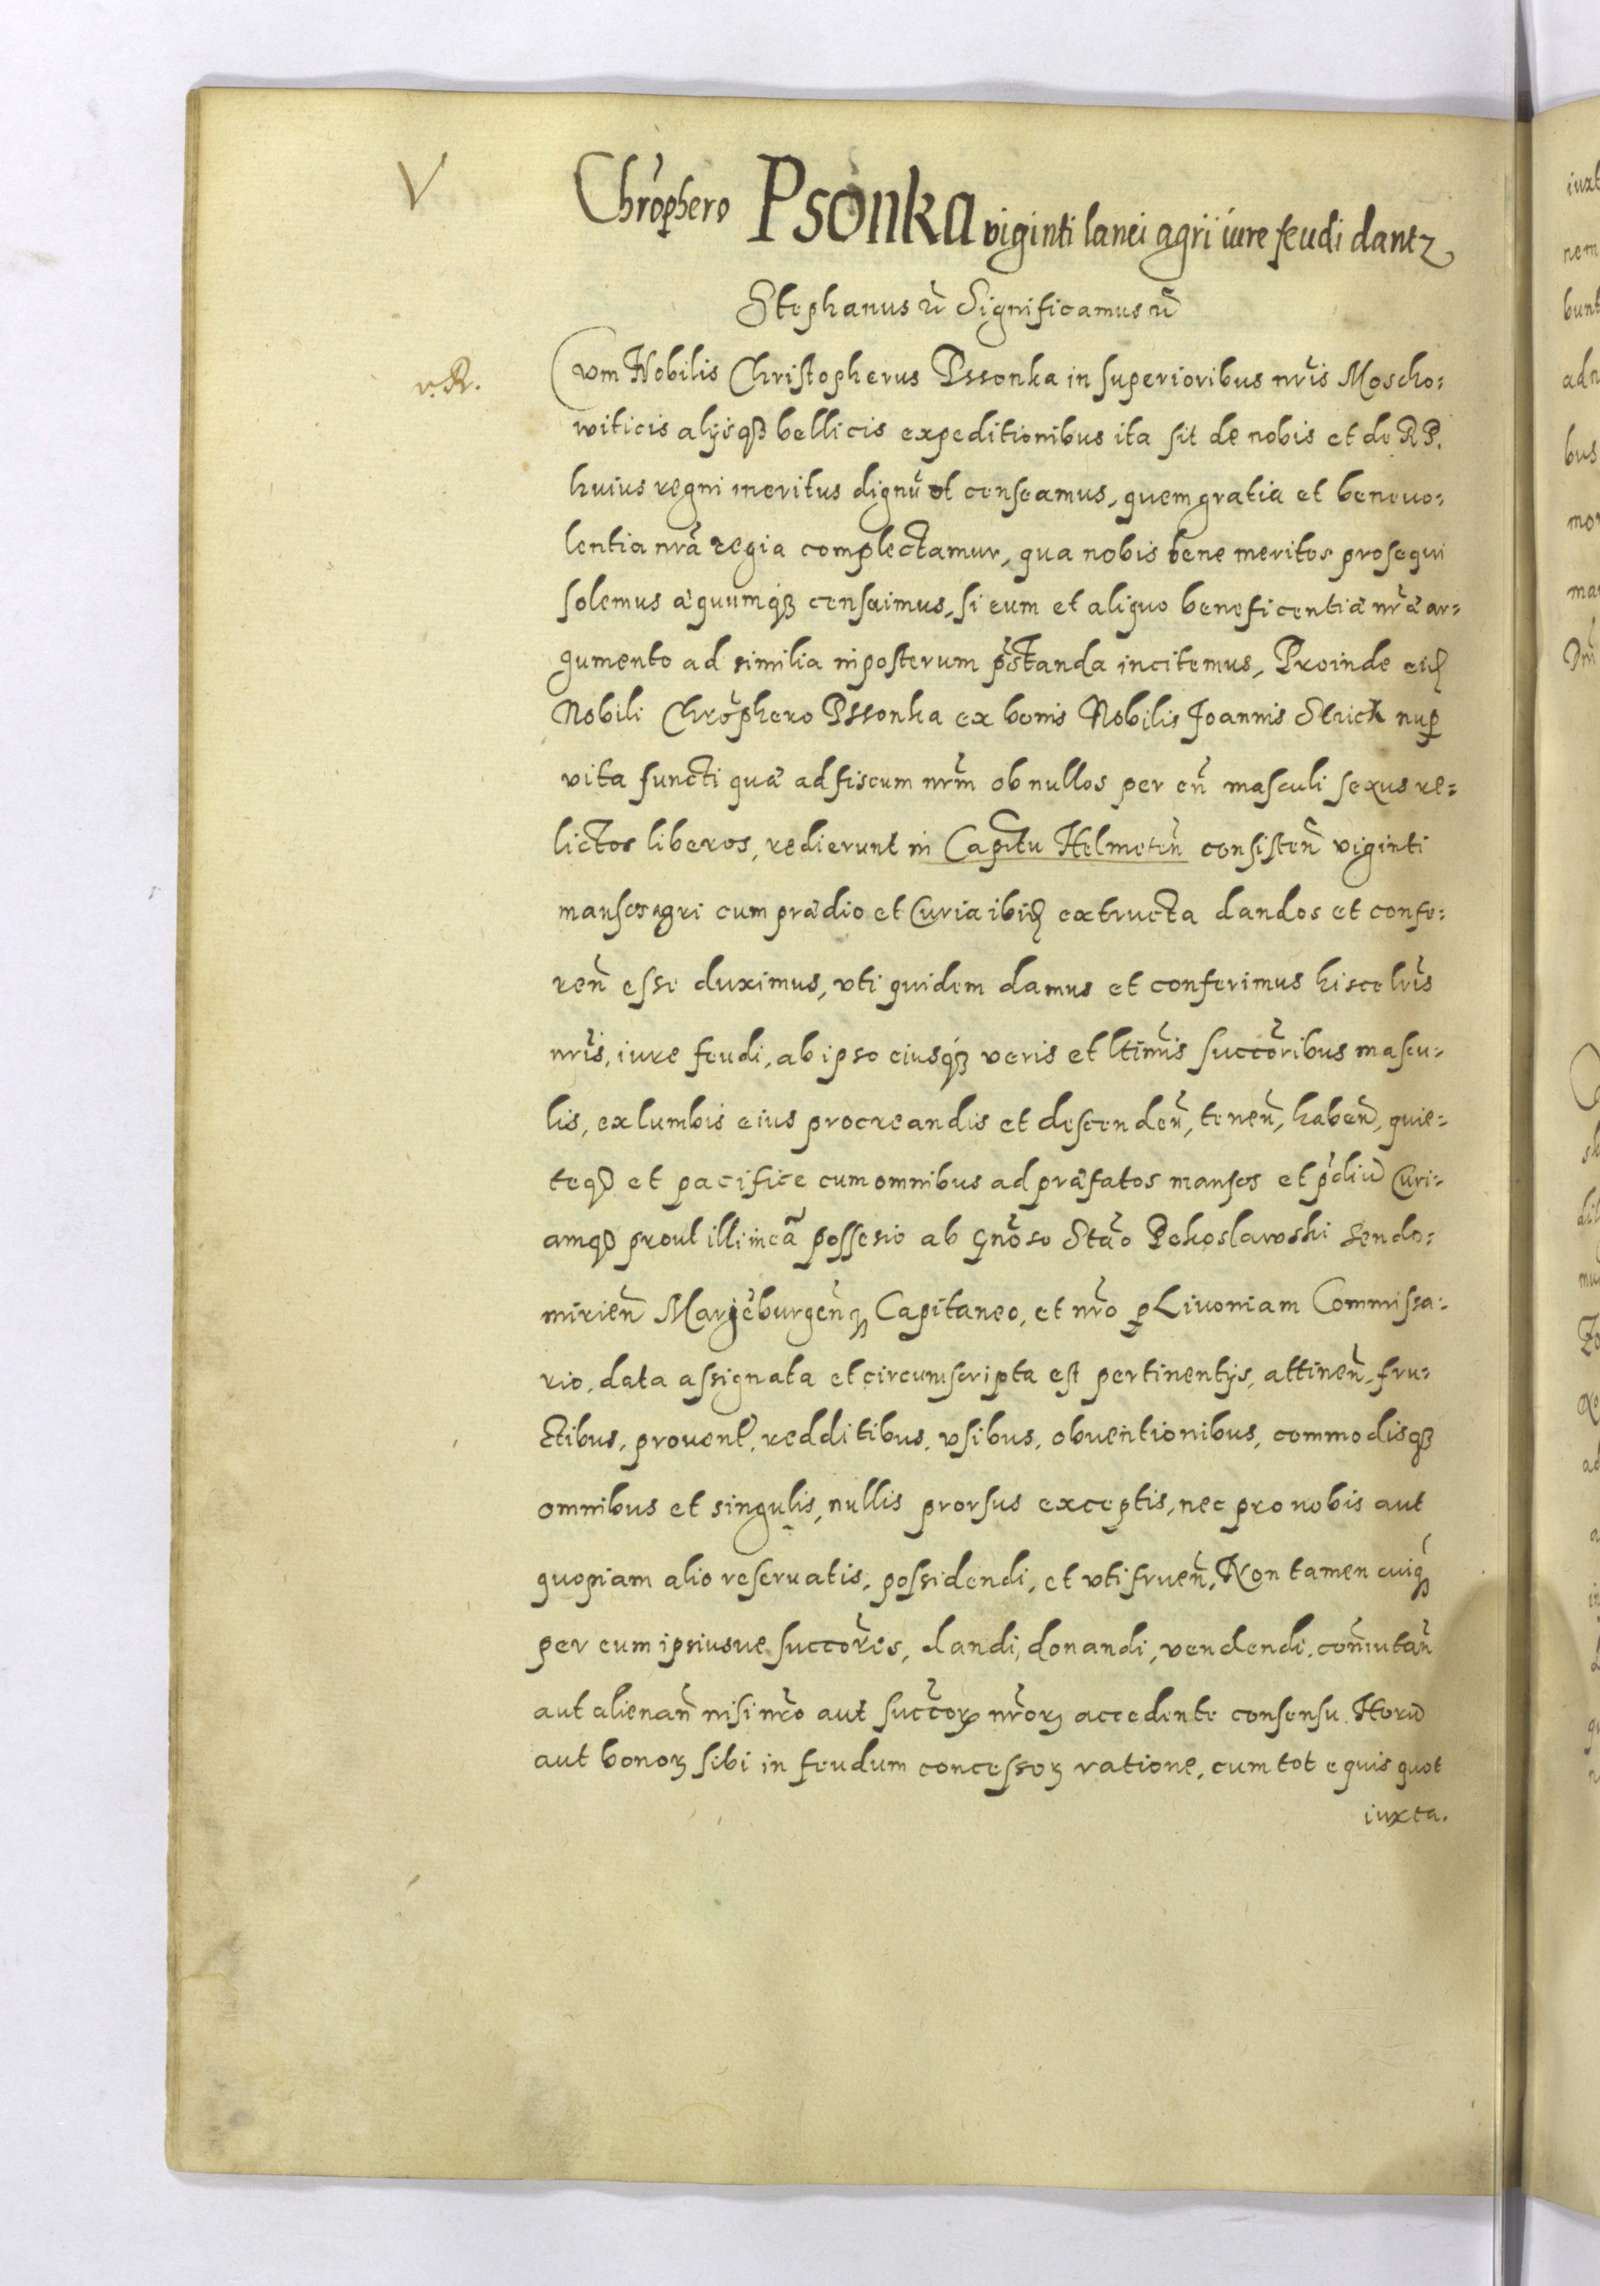 V
Chrōphero Psonka viginti lanei agri iure feudi dantꝫ
Stephanus ꝛc̄ Significamus ꝛc̄
v. R.
Cum Nobilis Christopherus Pssonka in superioribus nr̄is Moscho:
witicis alijsqꝫ bellicis expeditionibus ita sit de nobis et de R P.
huius regni meritus dignū ut censeamus, quem gratia et beneuo:
lentia nrā regia complectamur, qua nobis bene meritos prosequi
solemus æquumqꝫ censuimus, si eum et aliquo beneficentiæ nr̄æ ar:
gumento ad similia inposterum p̄standa incitemus, Proinde eid
Nobili Chrōphero Pssonka ex bonis Nobilis Joannis Strick nuꝑ
vita functi quæ ad fiscum nr̄m ob nullos per eū masculi sexus re:
lictos liberos, redierunt in Capitu Helmeten̄ consisten̄ viginti
mansos agri cum prædio et Curia ibid extructa dandos et confe:
ren̄ esse duximus, vti quidem damus et conferimus hisce lr̄is
nr̄is, iure feudi, ab ipso eiusqꝫ veris et ltimis succōribus mascu:
lis, ex lumbis eius procreandis et descenden̄, tenen̄, haben̄, quie:
teqꝫ et pacifice cum omnibus ad præfatos mansos et p̄diū Curi:
amqꝫ prout illi in eā possesio ab Gn̄oso Stāo Pekoslawski Sendo:
mirien̄ Marieburgen̄qꝫ Capitaneo, et nr̄o ꝑ Livoniam Commissa:
rio, data assignata et circumscripta est pertinentijs, attinen̄, fru:
ctibus, prouent', redditibus, vsibus, obuentionibus, commodisqꝫ
omnibus et singulis, nullis prorsus exceptis, nec pro nobis aut
quopiam alio reseruatis, possidendi, et vti fruen̄, Non tamen cuiqꝫ
per eum ipsiusue succōres, dandi, donandi, vendendi, com̄utan̄
aut alienan̄ nisi nr̄o aut succōrꝫ nr̄orꝫ accedente consensu. Horū
aut bonorꝫ sibi in feudum concessorꝫ ratione, cum tot equis quot
iuxta.